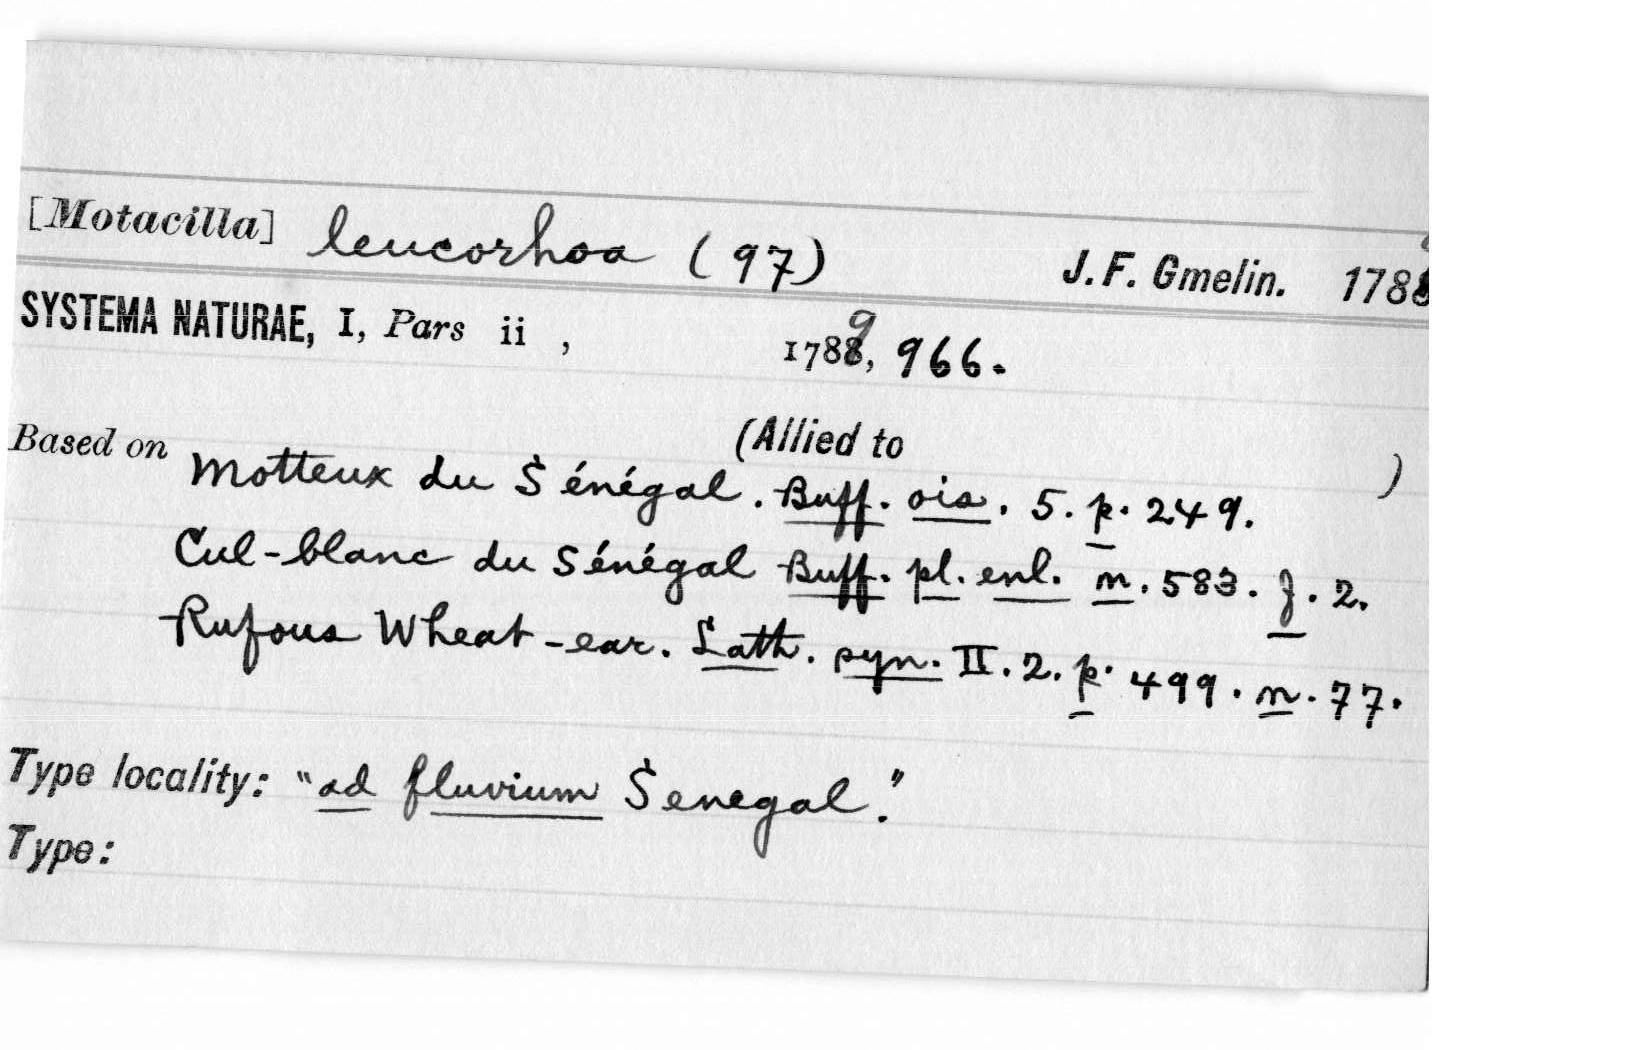 [Motacilla] leucorhoa (97) J. F. Gmelin. 1788
SYSTEMA NATURAE, I, Pars ii , 1789, 966.
Based on (Allied to )
Motteux du Sénégal. Buff. ois. 5. p. 249.
Cul-blanc du Sénégal Buff. pl. enl. n. 583. f. 2.
Rufous Wheat-ear. Lath. syn. II. 2. p. 499. n. 77.
Type locality: "ad fluvium Senegal."
Type: